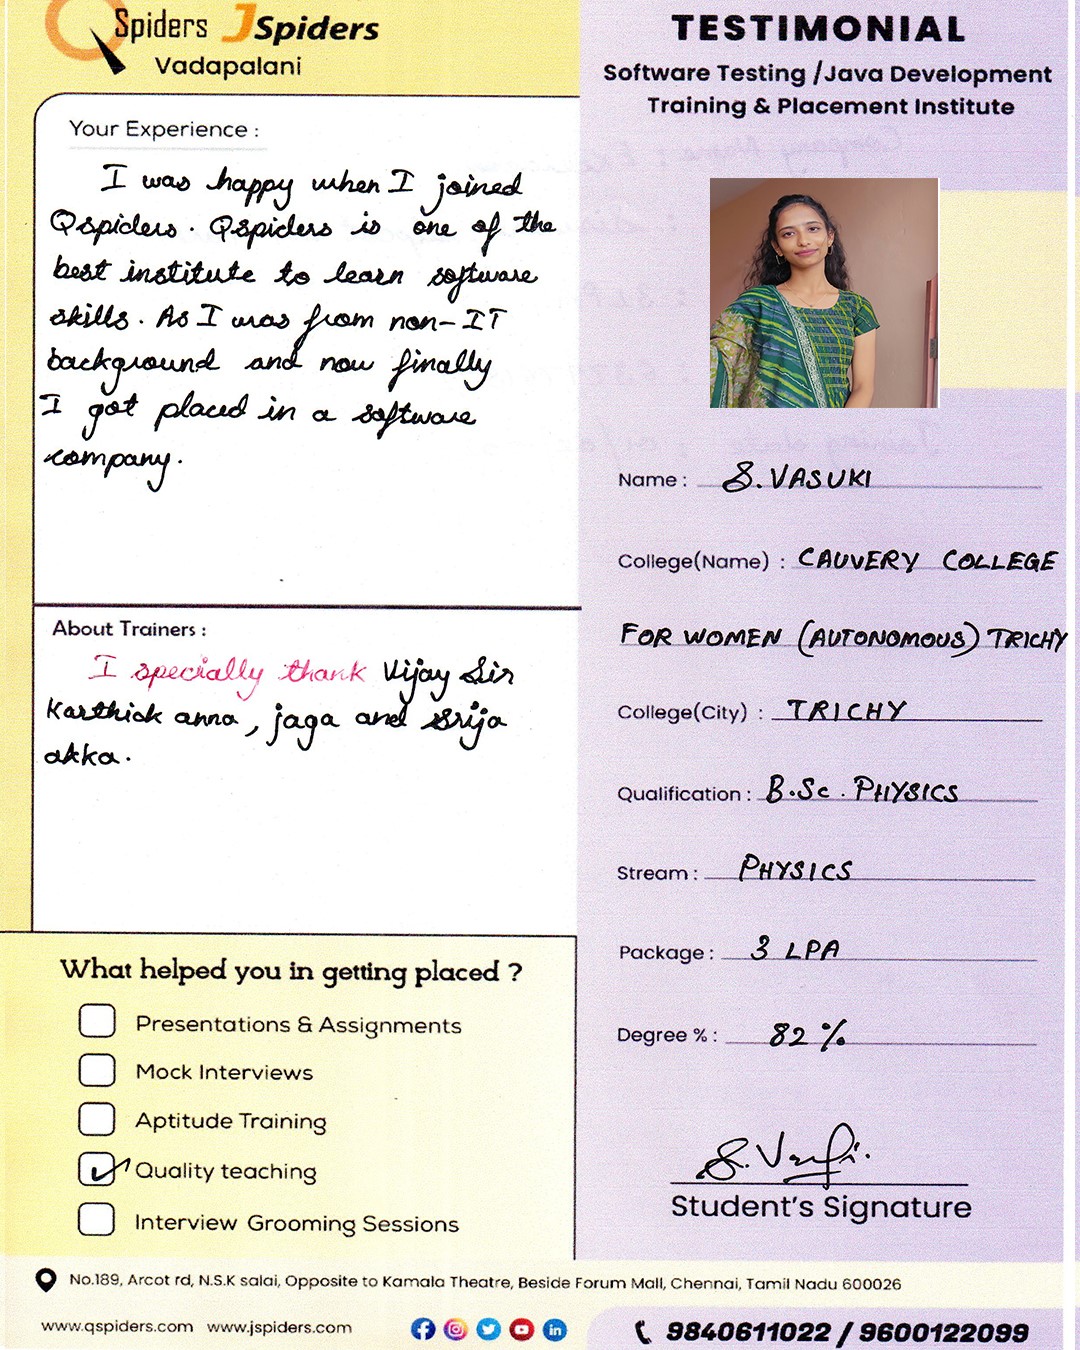 QSpiders JSpiders
Vadapalani
TESTIMONIAL
Software Testing /Java Development
Training & Placement Institute
Your Experience :
I was happy when I joined
Qspiders. Qspiders is one of the
best institute to learn software
skills. As I was from non-IT
background and now finally
I got placed in a software
company.
About Trainers :
I specially thank Vijay Sir
Karthick anna, jaga and Srija
akka.
What helped you in getting placed ?
Presentations & Assignments
Mock Interviews
Aptitude Training
Quality teaching
Interview Grooming Sessions
Name : S. VASUKI
College(Name) : CAUVERY COLLEGE
FOR WOMEN (AUTONOMOUS) TRICHY
College(City) : TRICHY
Qualification : B.Sc. PHYSICS
Stream : PHYSICS
Package : 3 LPA
Degree % : 82 %
Student's Signature
No.189, Arcot rd, N.S.K salai, Opposite to Kamala Theatre, Beside Forum Mall, Chennai, Tamil Nadu 600026
www.qspiders.com www.jspiders.com
9840611022 / 9600122099